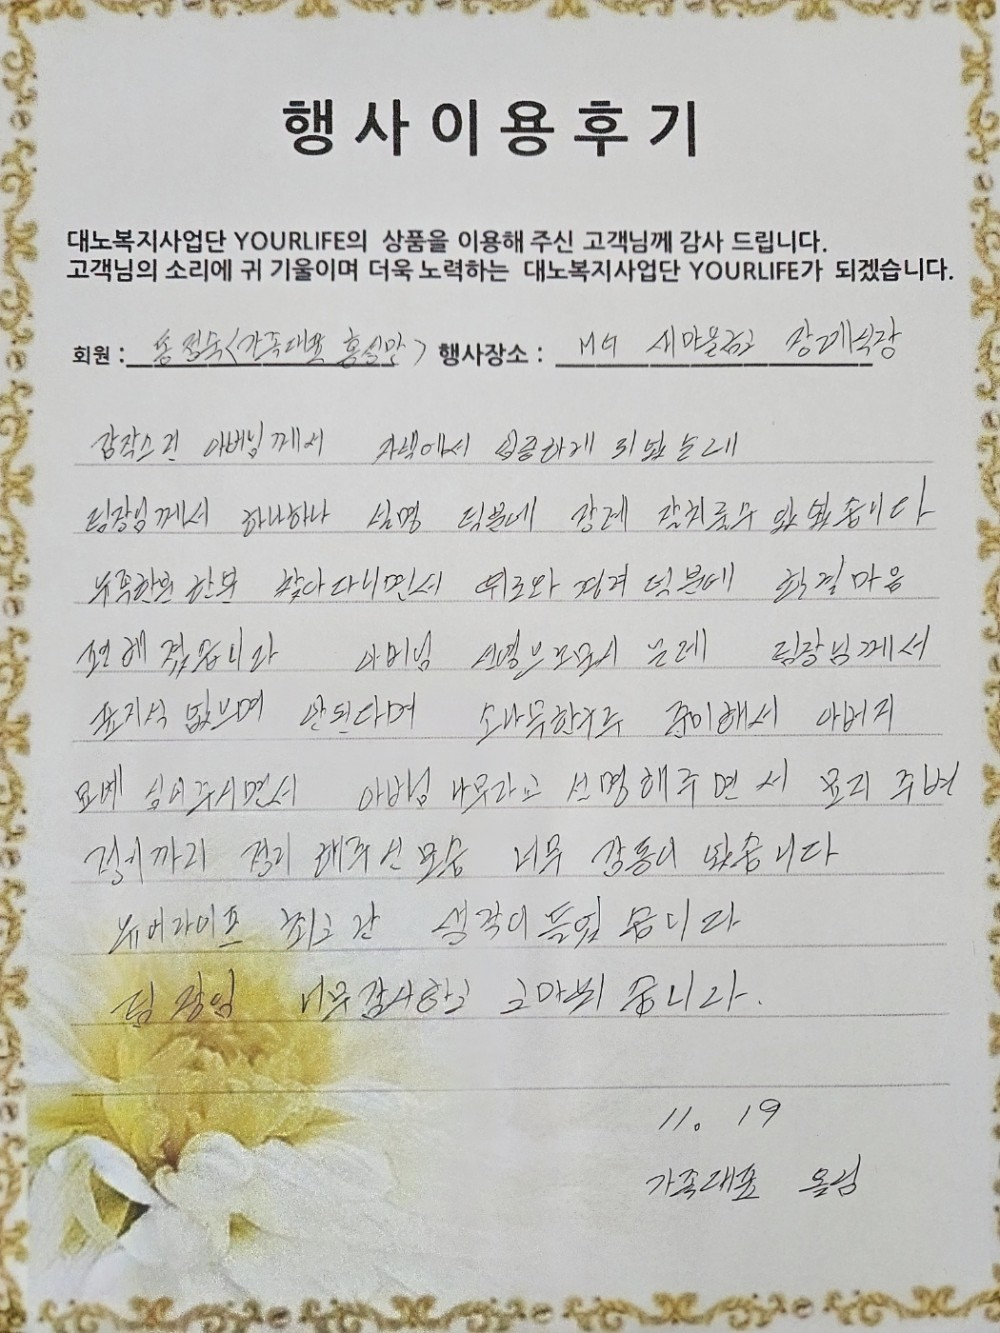 행사이용후기
대노복지사업단 YOURLIFE의 상품을 이용해 주신 고객님께 감사 드립니다.
고객님의 소리에 귀 기울이며 더욱 노력하는 대노복지사업단 YOURLIFE가 되겠습니다.
회원 : 송정숙(가족대표 홍실만) 행사장소 : MG 새마을금고 장례식장
갑작스런 아버님께서 자택에서 되셨는데
팀장님께서 하나하나 설명 덕분에 장례 잘치를수
부족한부분 찾아다니면서 위로와 격려 덕분에 한결마음
편해졌습니다 아버님 선영부모모시는데 팀장님께서
표지석 없으면 안된다며 소나무한구루 준비해서 아버지
묘에 심어주시면서 아버님 나무라고 설명해주면서 묘지 주변
정리까지 정리 해주신 모습 너무 감동이 였습니다
유어라이프 최고란 생각이 습니다
팀장님 너무감사하고 고마웠습니다.
11. 19
가족대표 올림